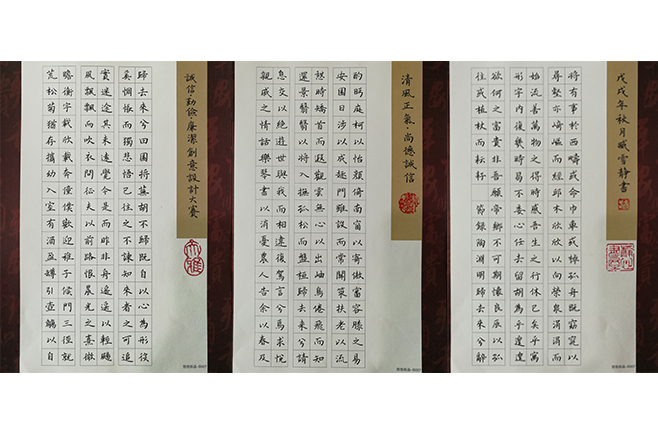 誠信·勤儉·廉潔創意設計大賽
歸去來兮田園將蕪胡不歸既自以心為形役
奚惆悵而獨悲悟已往之不諫知來者之可追
實迷途其未遠覺今是而昨非舟遙遙以輕颺
風飄飄而吹衣問征夫以前路恨晨光之熹微
瞻衡宇載欣載奔僮僕歡迎稚子候門三徑就
荒松菊猶存攜幼入室有酒盈罇引壺觴以自
清風正氣·尚德誠信
酌眄庭柯以怡顏倚南窗以寄傲審容膝之易
安園日涉以成趣門雖設而常關策扶老以流
憩時矯首而遐觀雲無心以出岫鳥倦飛而知
還景翳翳以將入撫孤松而盤桓歸去來兮請
息交以絕遊世與我而相違復駕言兮焉求悅
親戚之情話樂琴書以消憂農人告余以春及
戊戌年秋月臧雪靜書
將有事於西疇或命巾車或棹孤舟既窈窕以
尋壑亦崎嶇而經邱木欣欣以向榮泉涓涓而
始流善萬物之得時感吾生之行休已矣乎寓
形宇內復幾時曷不委心任去留胡為乎遑遑
欲何之富貴非吾願帝鄉不可期懷良辰以孤
往或植杖而耘耔 節錄陶淵明歸去來兮辭